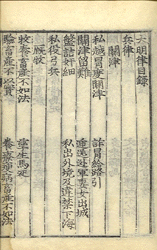 大明律目錄
兵律
關津
私越冒度關津
詐冒給路引
關津留難
遞送逃軍妻女出城
盤詰奸細
私出外境及違禁下海
私役弓兵
廐牧
牧養畜產不如法
孳生馬匹
驗畜產不以實
養療瘦病畜產不如法